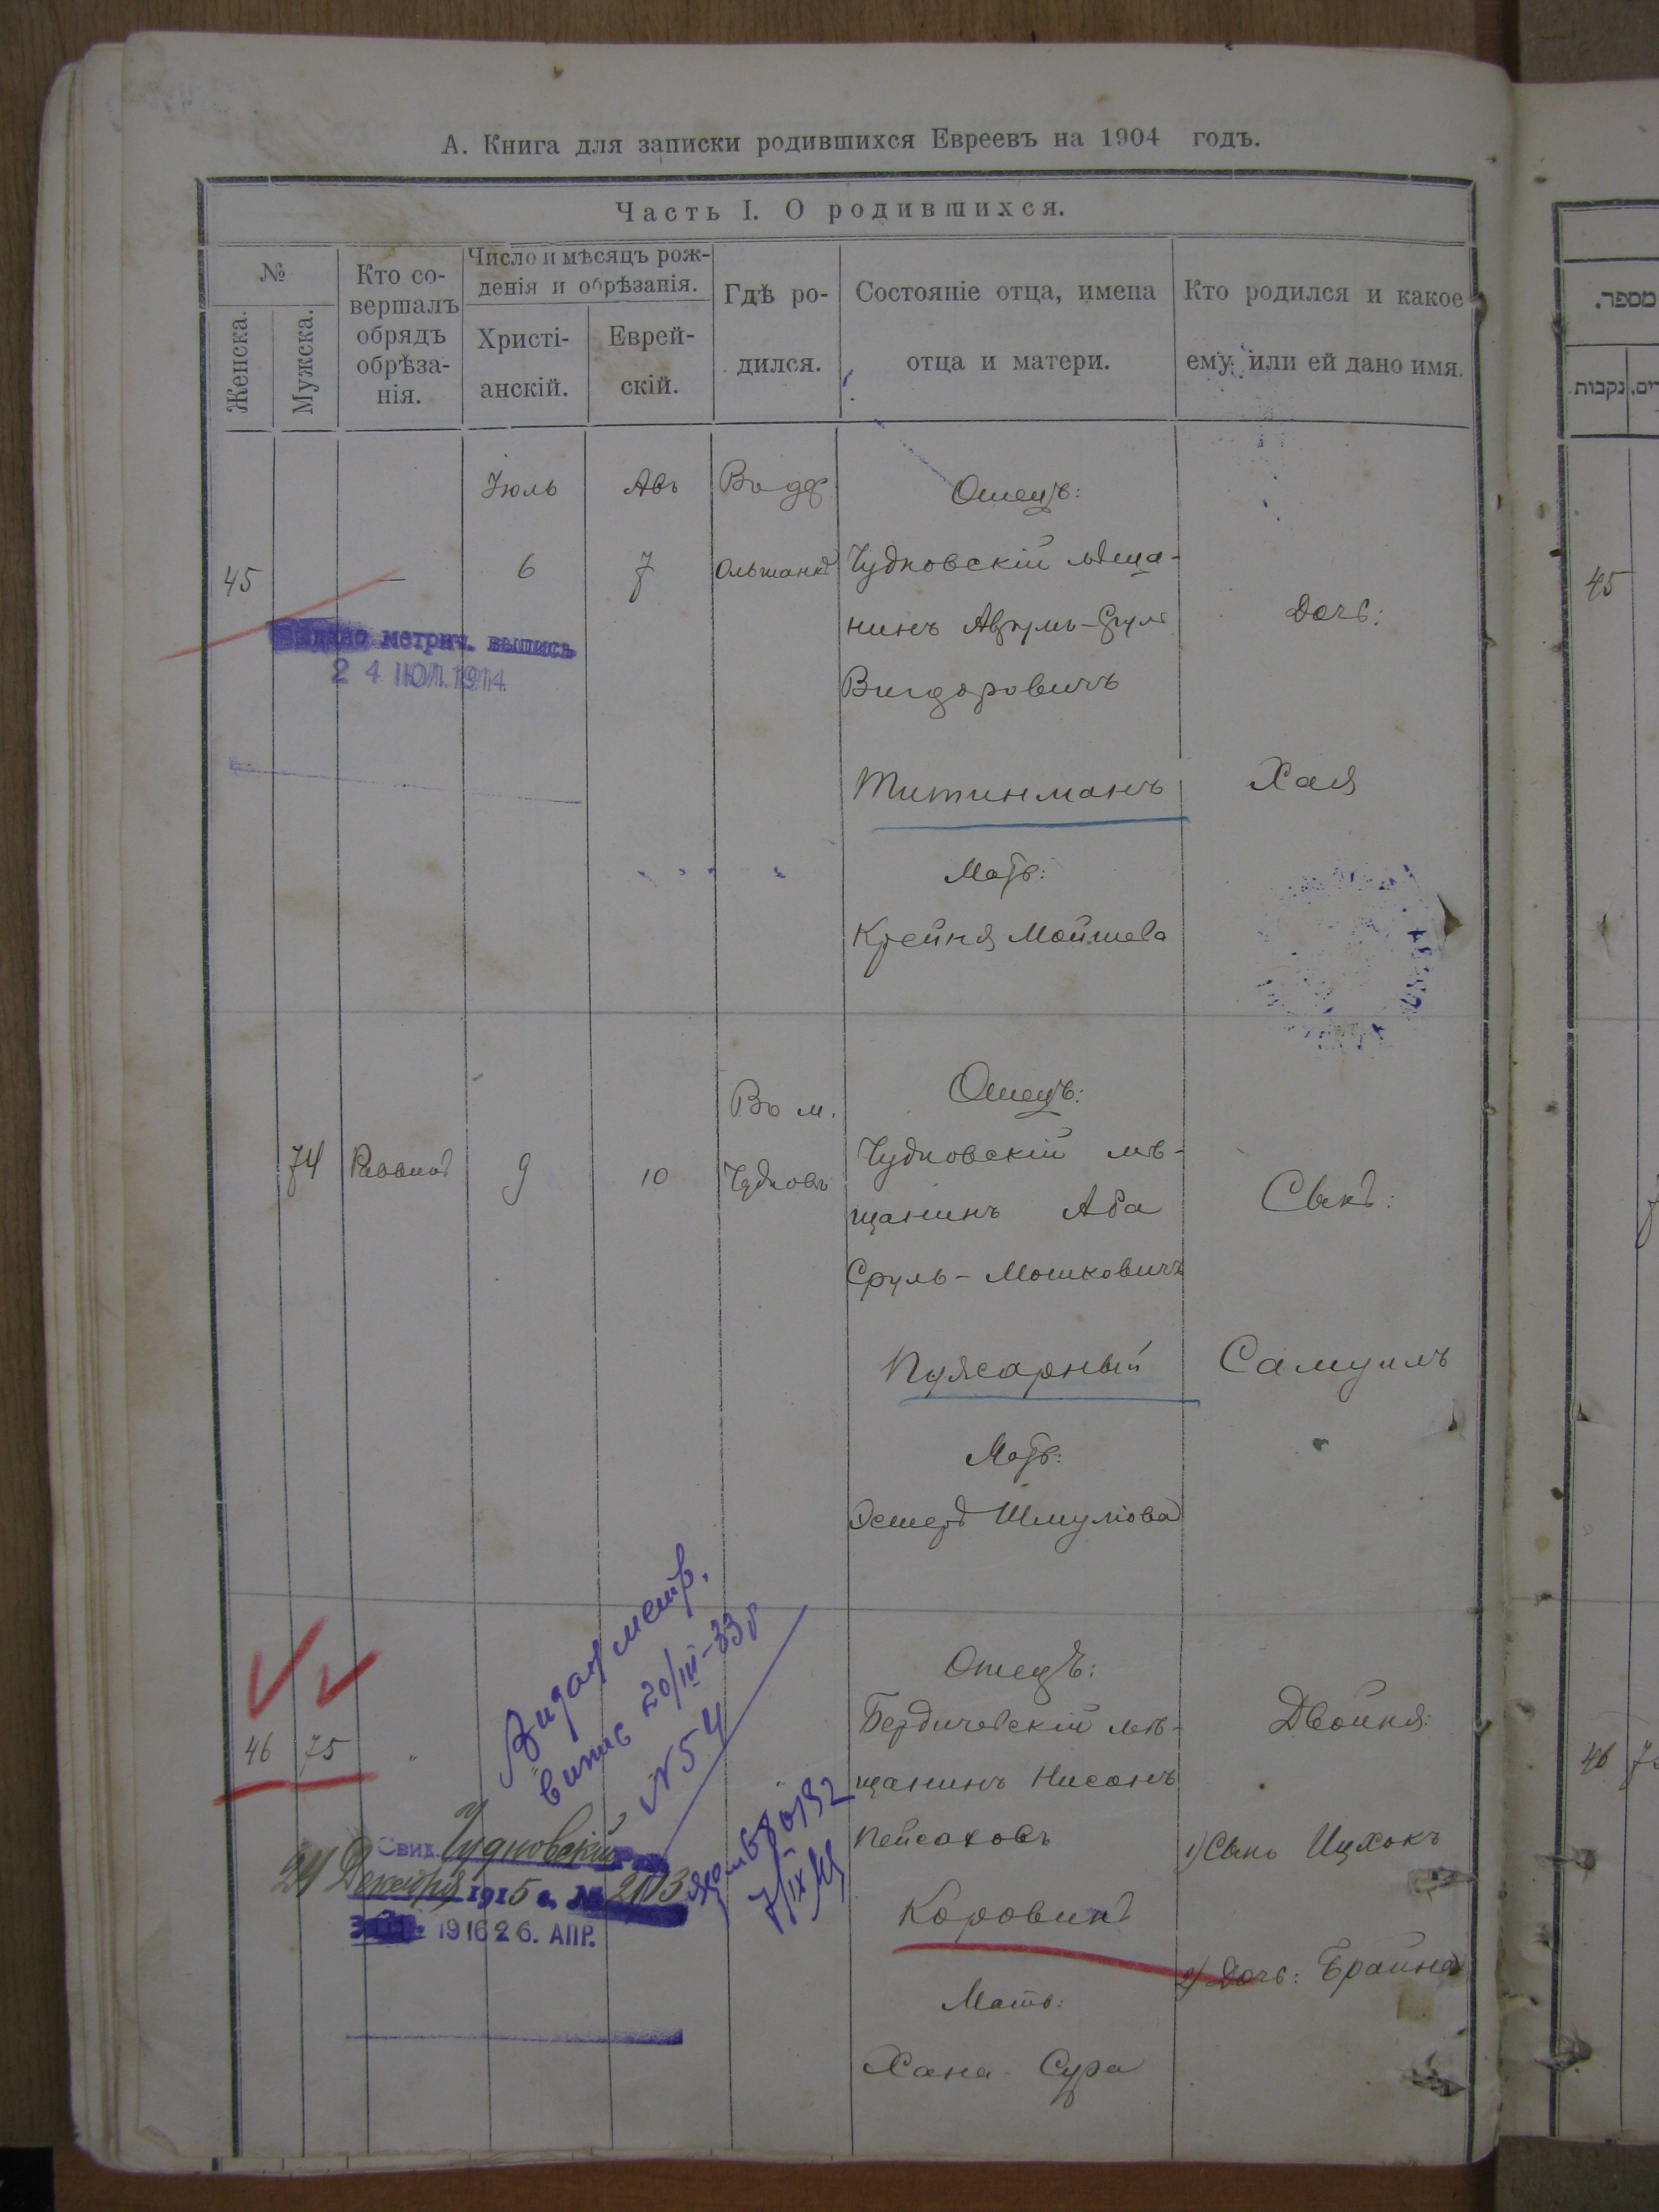 А. Книга для записки родившихся Евреевъ на 1904 годъ.
Часть I. О родившихся.
№
Женска.
Мужска.
Кто со-
вершалъ
обрядъ
обрѣза-
нія.
Число и мѣсяцъ рож-
денія и обрѣзанія.
Христі-
анскій.
Еврей-
скій.
Гдѣ ро-
дился.
Состояніе отца, имена
отца и матери.
Кто родился и какое
ему или ей дано имя.
45
—
Іюль
6
Авъ
7
Въ
Отецъ:
Чудновскій мѣща-
нинъ Аврумъ-Сруль
Вигдоровичъ
Титинманъ
Мать:
Крейня Мойшева
Дочь:
Хая
метрич. выпись
24 ІЮЛ. 1914
74
Раввинъ
9
10
Въ м.
Чудновъ
Отецъ:
Чудновскій мѣ-
щанинъ Аба
Сруль-Мошковичъ
Мать:
Эстеръ Шмулiова
Сынъ:
Самуилъ
46 75
"
Отецъ:
Бердичевскій мѣ-
щанинъ Нисонъ
Пейсаховъ
Коровинъ
Мать:
Хана-Сура
Двойня:
1) Сынъ Ицхокъ
2) Дочь: Брайна
метр.
випис 20/III-33 р
№ 54
Свид. Чудновскій
24 Декабря 1915 г. №
1916 26. АПР.
מספר.
נקבות
45
46